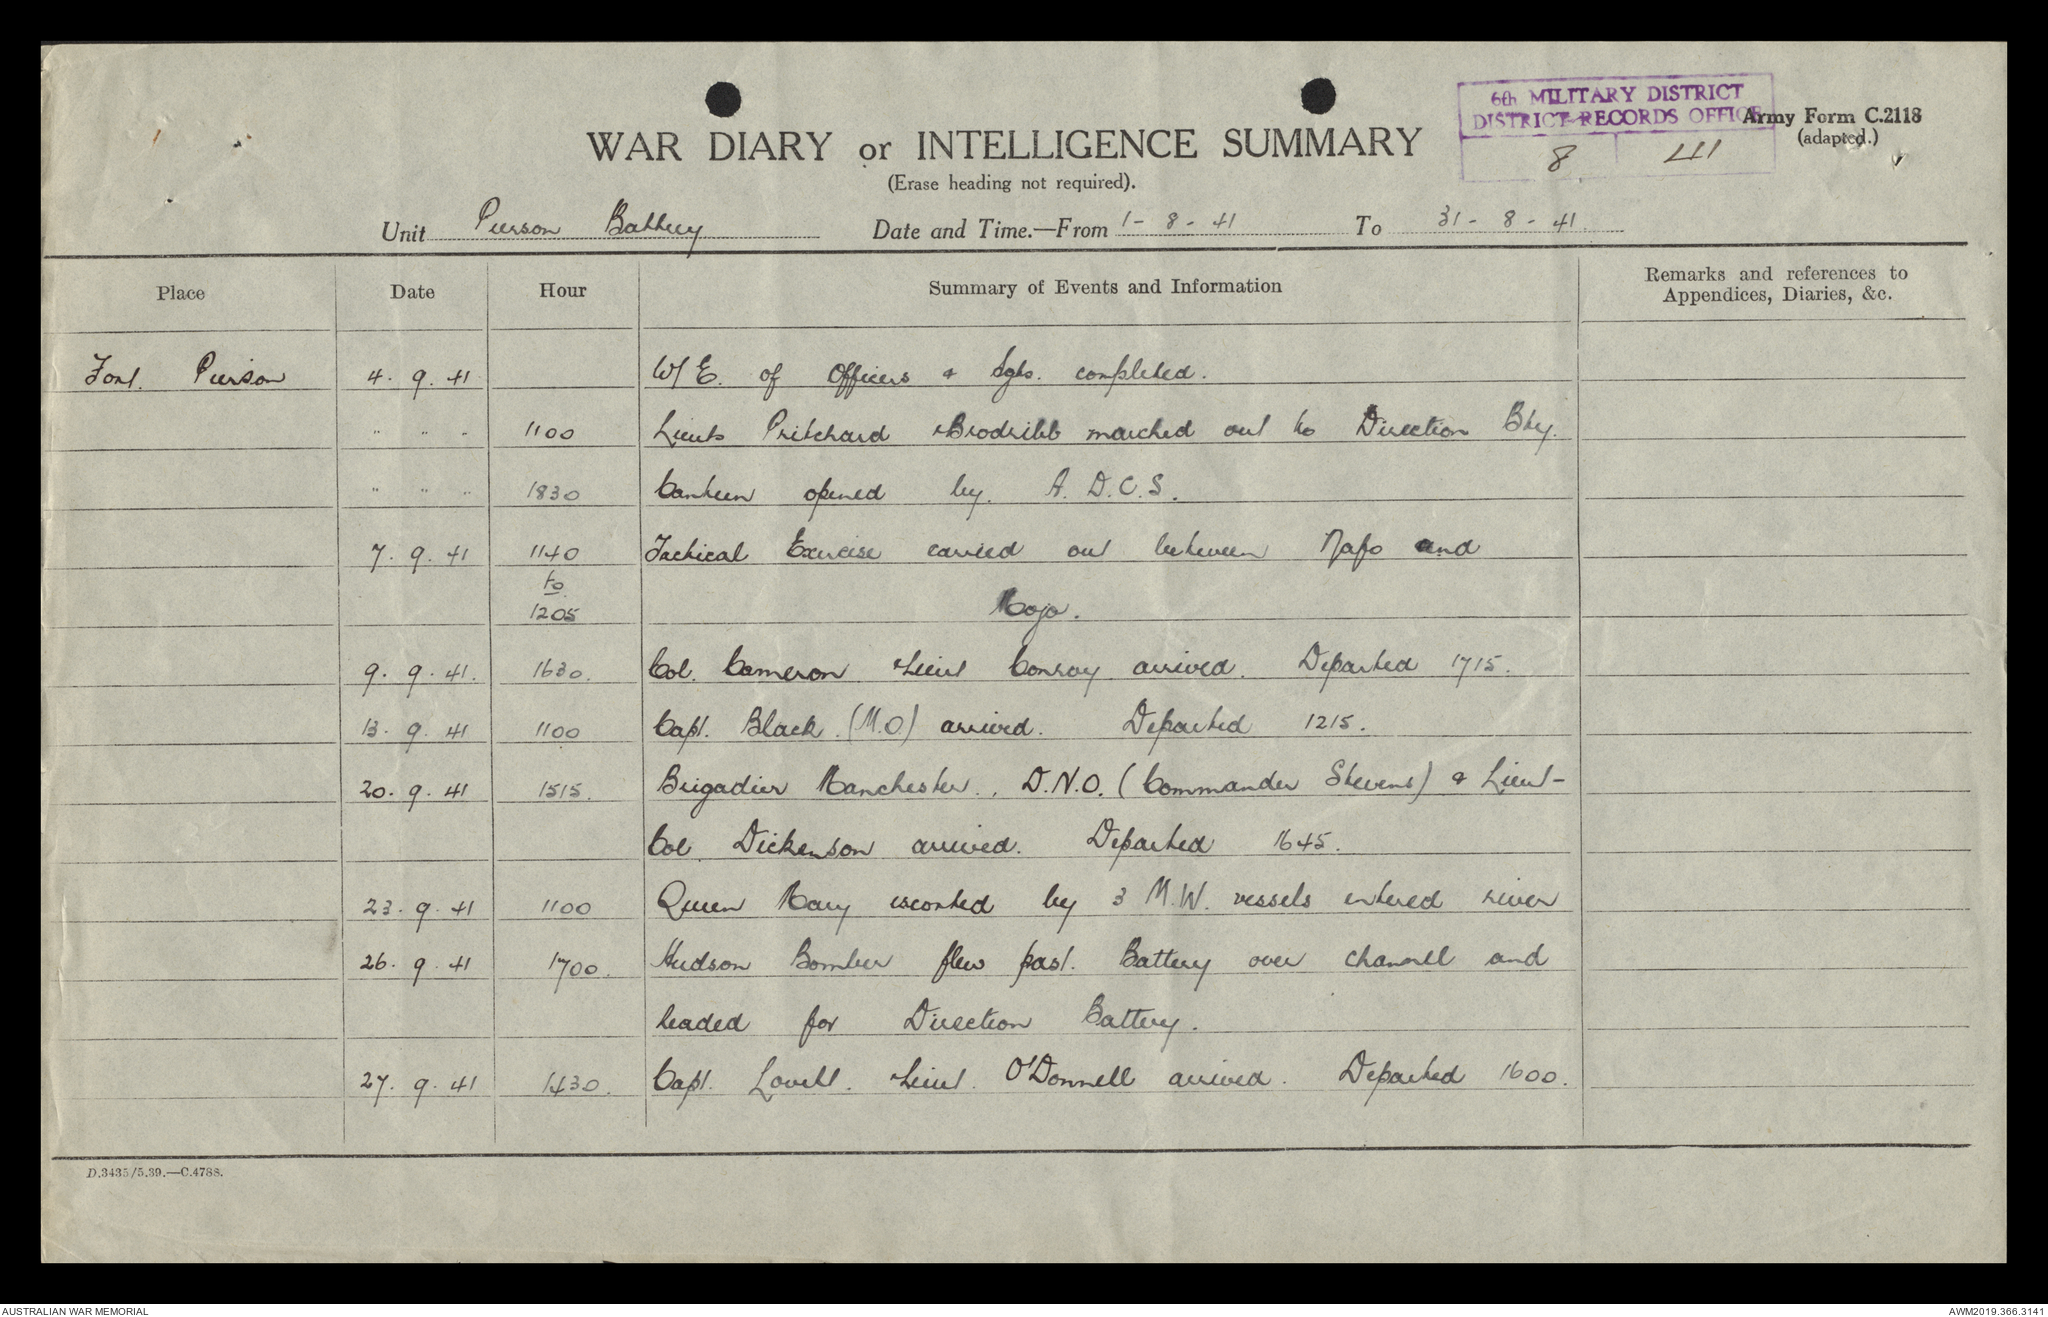 6th MILITARY DISTRICT
DISTRICT RECORDS OFFICE
8 41
Army Form C.2118
(adapted.)
WAR DIARY or INTELLIGENCE SUMMARY
(Erase heading not required).
Unit Pierson Battery Date and Time.—From 1-8-41 To 31-8-41.
Place Date Hour Summary of Events and Information Remarks and references to
Appendices, Diaries, &c.
Fort. Pierson 4.9.41 W/E. of Officers & Sgts. completed.
" " " 1100 Lieuts Pritchard & Brodribb marched out to Direction Bty.
" " " 1830 Canteen opened by. A.D.C.S.
7.9.41 1140 Tactical Exercise carried out between Napo and
to
1205 Mojo.
9.9.41. 1630. Col. Cameron & Lieut Conroy arrived. Departed 1715.
13.9.41 1100 Capt. Black. (M.O) arrived. Departed 1215.
20.9.41 1515. Brigadier Manchester., D.N.O. (Commander Stevens) & Lieut-
Col. Dickenson arrived. Departed 1645.
23.9.41 1100 Queen Mary escorted by 3 M.W. vessels entered river
26.9.41 1700. Hudson Bomber flew past. Battery over channell and
headed for Direction Battery.
27.9.41 1430. Capt. Lovell. & Lieut. O'Donnell arrived. Departed 1600.
D.3435/5.39.—C.4788.
AUSTRALIAN WAR MEMORIAL AWM2019.366.3141